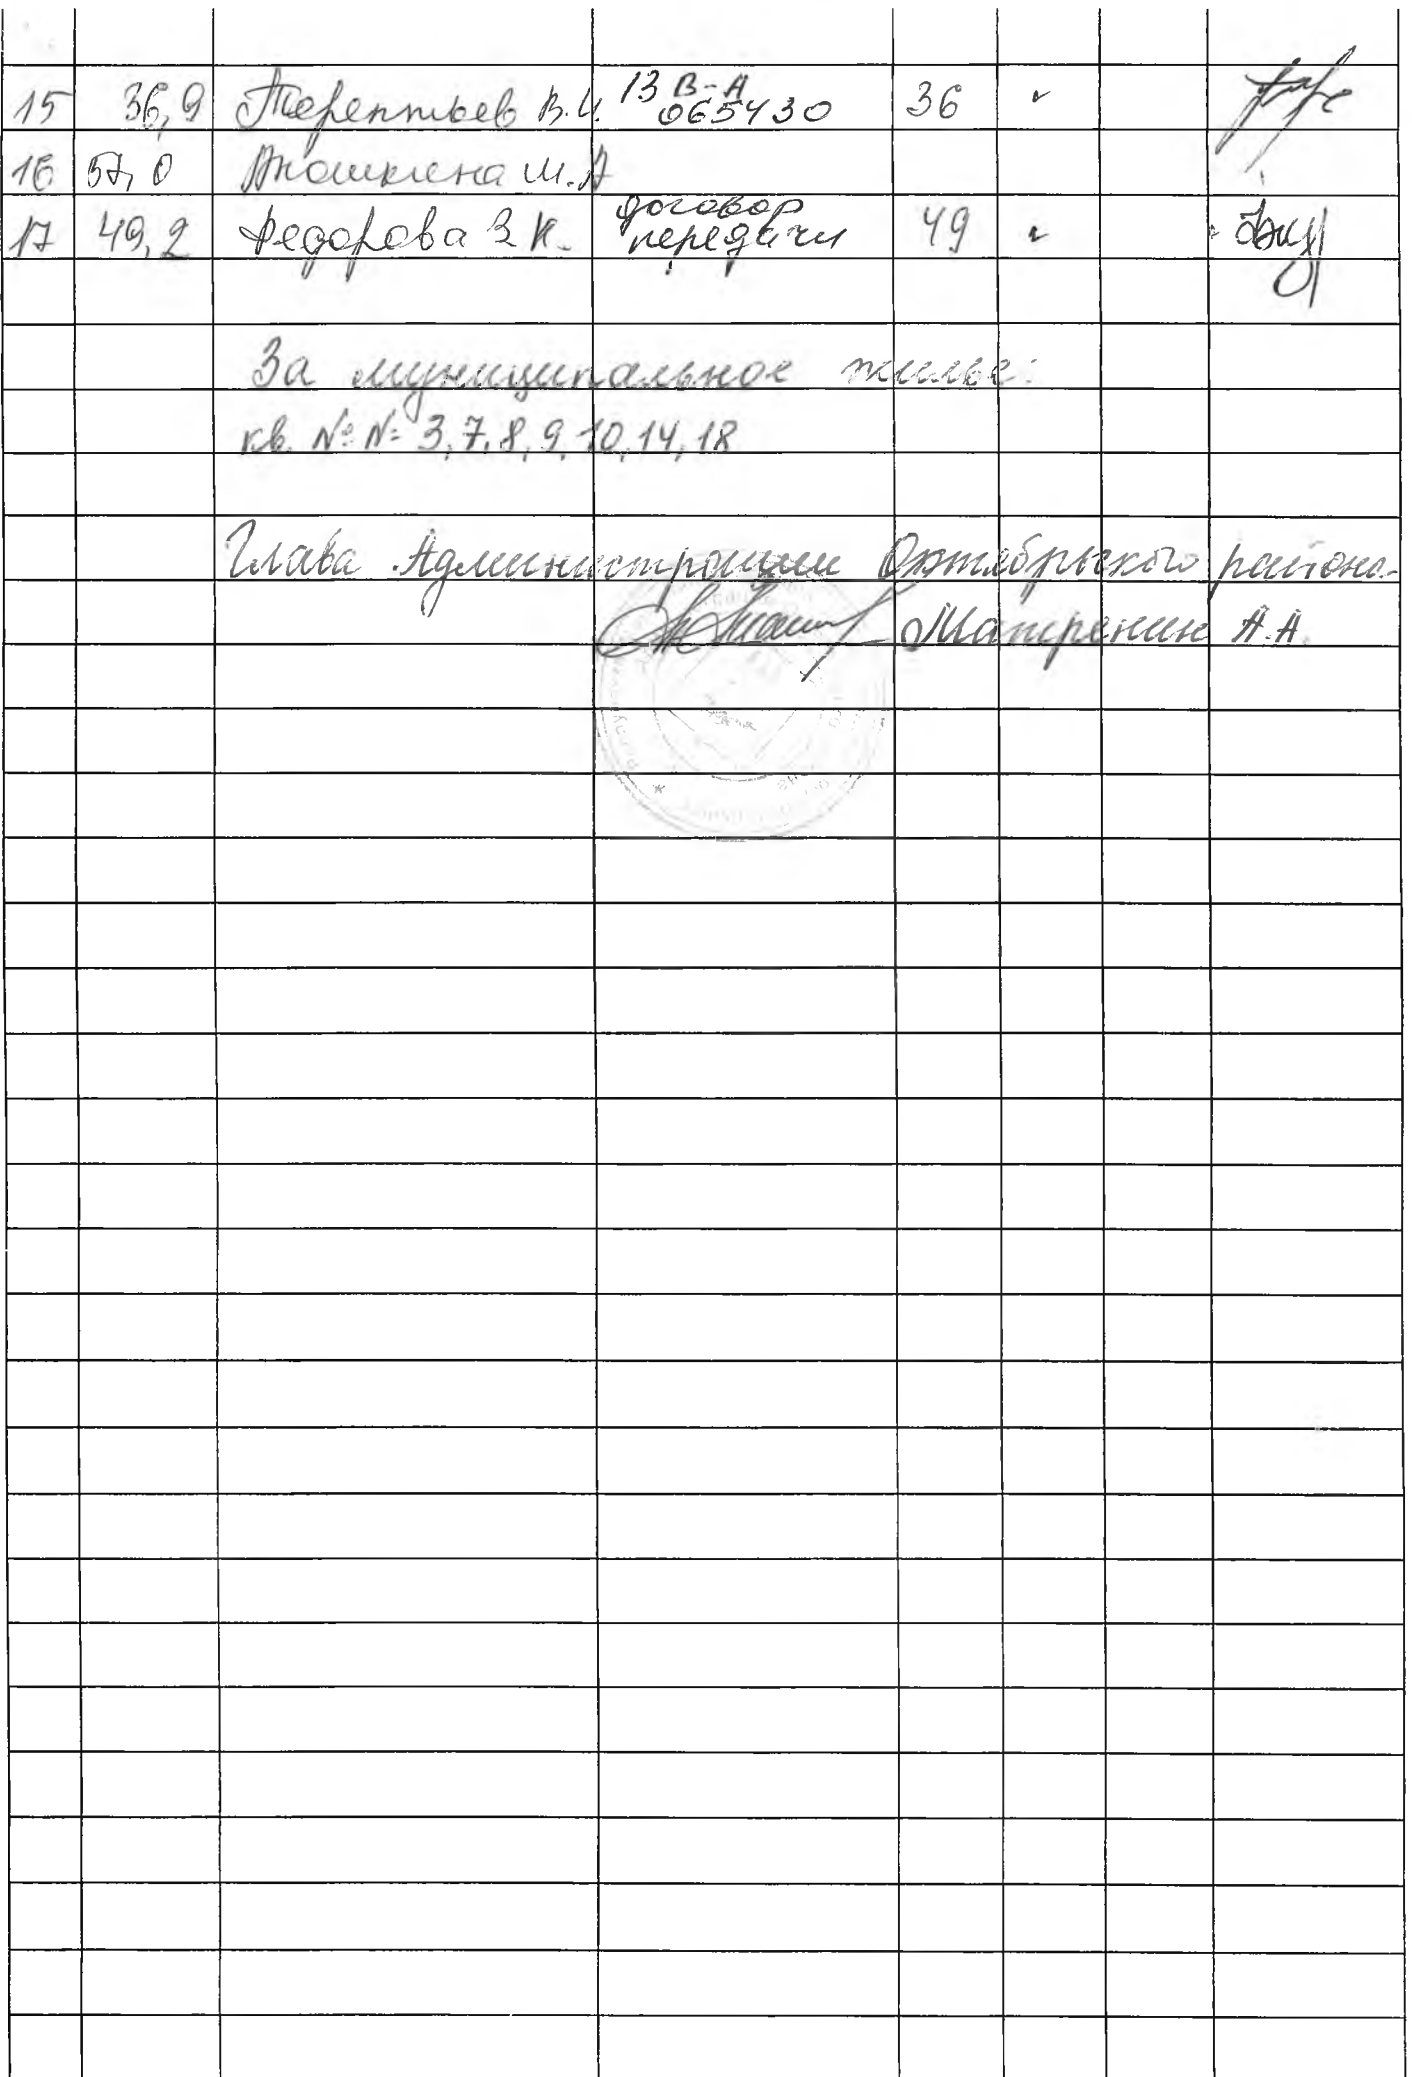 15 36,9 Терентьев В.И. 13 В-А 065430 36 ✓
16 57,0 Аношкина М.А
17 49,2 Федорова З К. договор передачи 49 ✓
За муниципальное жилье:
кв. №№ 3,7,8,9,10,14,18
Глава Администрации Октябрьского района
Матренин А.А.